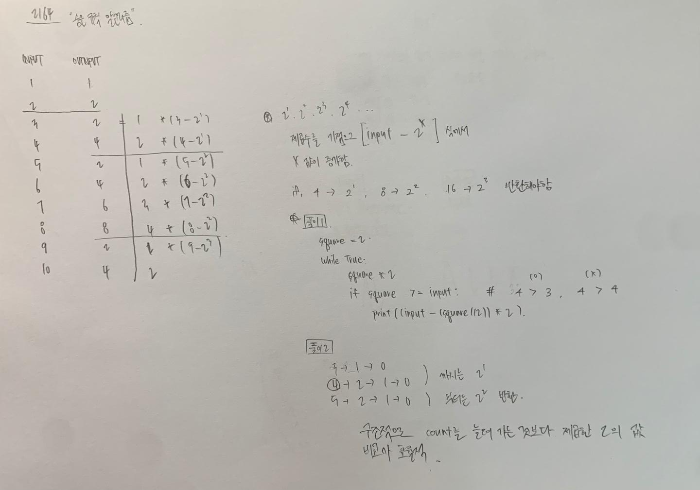 2164
INPUT OUTPUT
1 1
2 2
3 2 1 * (3-2¹)
4 4 2 * (4-2¹)
5 2 1 * (5-2²)
6 4 2 * (6-2²)
7 6 3 * (7-2²)
8 8 4 * (8-2²)
9 2 1 * (9-2³)
10 4 2
2¹, 2², 2³, 2⁴ ...
제곱수를 기점으로 [input - 2^x] 식에서
x 값이 증가함.
4 → 2¹, 8 → 2², 16 → 2² 반환해야함
풀이1
square = 2
while True:
square * 2
if square >= input: # 4 > 3, 4 > 4
(o) (x)
print((input - (square//2)) * 2).
풀이2
3 → 1 → 0
4 → 2 → 1 → 0 ) 까지는 2¹
5 → 2 → 1 → 0 ) 부터는 2² 반환.
count를 늘려 가는 것보다 제곱한 2의 값
비교가 효율적